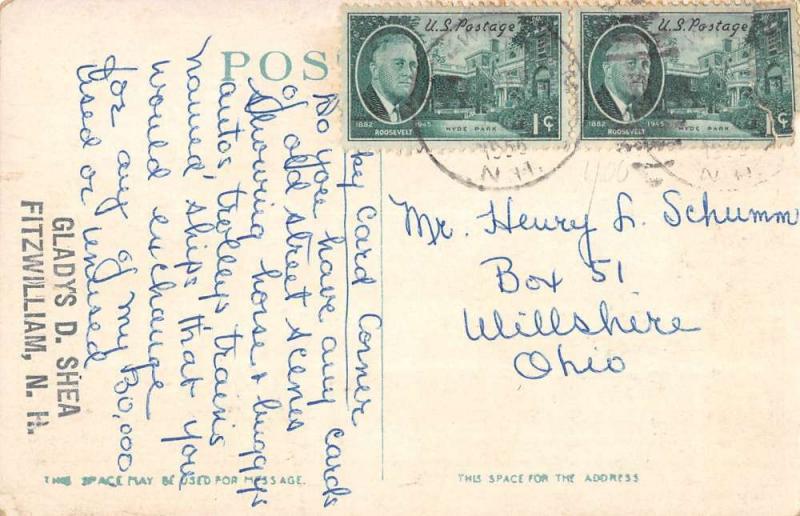 POST
U.S. Postage
1882 1945
ROOSEVELT
HYDE PARK
1¢
U.S. Postage
1882 1945
ROOSEVELT
HYDE PARK
1¢
N.H.
N.H.
Card Corner
Do you have any cards
of old street scenes
showing horse & buggys
autos, trolleys trains
named ships that you
would exchange
for any of my 30,000
used or unused
GLADYS D. SHEA
FITZWILLIAM, N. H.
Mr. Henry L. Schumm
Box 51
Willshire
Ohio
THIS SPACE MAY BE USED FOR MESSAGE.
THIS SPACE FOR THE ADDRESS